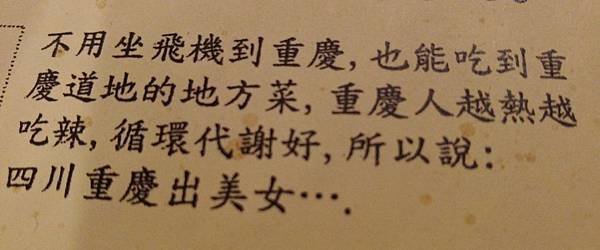 不用坐飛機到重慶,也能吃到重
慶道地的地方菜,重慶人越熱越
吃辣,循環代謝好,所以說:
四川重慶出美女….